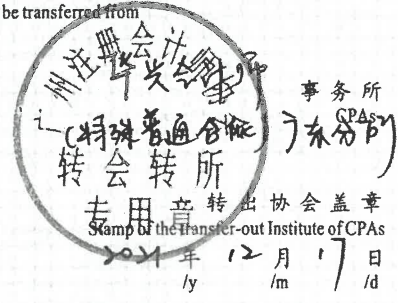 be transferred from
州注册会计师
华兴会计师
事务所
CPAs
(特殊普通合伙)广东分所
转会转所
专用章
转出协会盖章
Stamp of the transfer-out Institute of CPAs
2021 年 12 月 17 日
/y /m /d